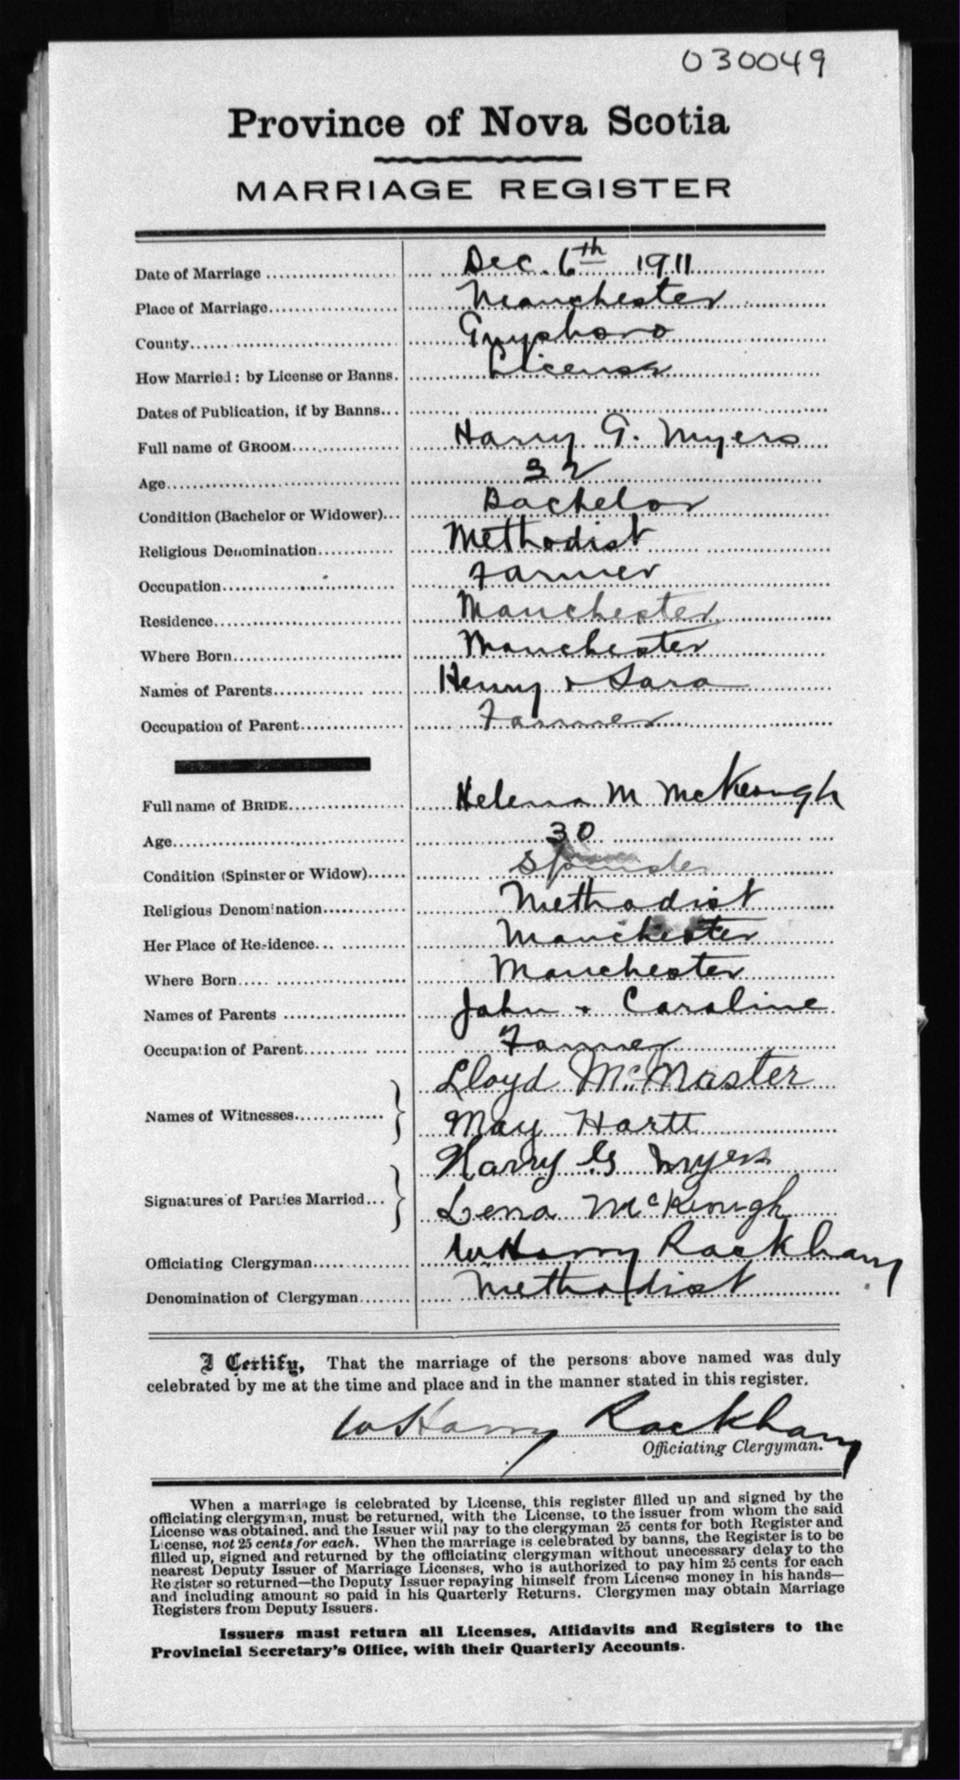 030049
Province of Nova Scotia
MARRIAGE REGISTER
Date of Marriage Dec. 6th 1911
Place of Marriage Manchester
County Guysboro
How Married: by License or Banns. License
Dates of Publication, if by Banns
Full name of GROOM Harry G. Myers
Age 32
Condition (Bachelor or Widower) Bachelor
Religious Denomination Methodist
Occupation Farmer
Residence Manchester
Where Born Manchester
Names of Parents Henry & Sara
Occupation of Parent Farmer
Full name of BRIDE Helena M McKeough
Age 30
Condition (Spinster or Widow) Spinster
Religious Denomination Methodist
Her Place of Residence Manchester
Where Born Manchester
Names of Parents John & Caroline
Occupation of Parent Farmer
Names of Witnesses Lloyd McMaster
May Hartt
Signatures of Parties Married Harry G Myers
Lena McKeough
Officiating Clergyman W Harry Rackham
Denomination of Clergyman Methodist
I Certify, That the marriage of the persons above named was duly
celebrated by me at the time and place and in the manner stated in this register.
W Harry Rackham
Officiating Clergyman.
When a marriage is celebrated by License, this register filled up and signed by the
officiating clergyman, must be returned, with the License, to the issuer from whom the said
License was obtained, and the Issuer will pay to the clergyman 25 cents for both Register and
License, not 25 cents for each. When the marriage is celebrated by banns, the Register is to be
filled up, signed and returned by the officiating clergyman without unecessary delay to the
nearest Deputy Issuer of Marriage Licenses, who is authorized to pay him 25 cents for each
Register so returned—the Deputy Issuer repaying himself from License money in his hands—
and including amount so paid in his Quarterly Returns. Clergymen may obtain Marriage
Registers from Deputy Issuers.
Issuers must return all Licenses, Affidavits and Registers to the
Provincial Secretary's Office, with their Quarterly Accounts.